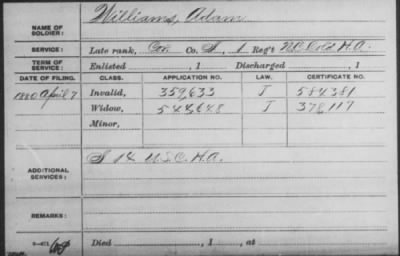 NAME OF SOLDIER: Williams, Adam
SERVICE: Late rank, Co. S, 1 Reg't N.C. Col. H.A.
TERM OF SERVICE: Enlisted , 1 Discharged , 1
DATE OF FILING. CLASS. APPLICATION NO. LAW. CERTIFICATE NO.
1880 April 7 Invalid, 359,633 J 584381
Widow, 544,648 J 378,117
Minor,
ADDITIONAL SERVICES: S 14 U.S.C.H.A.
REMARKS:
Died , 1 , at